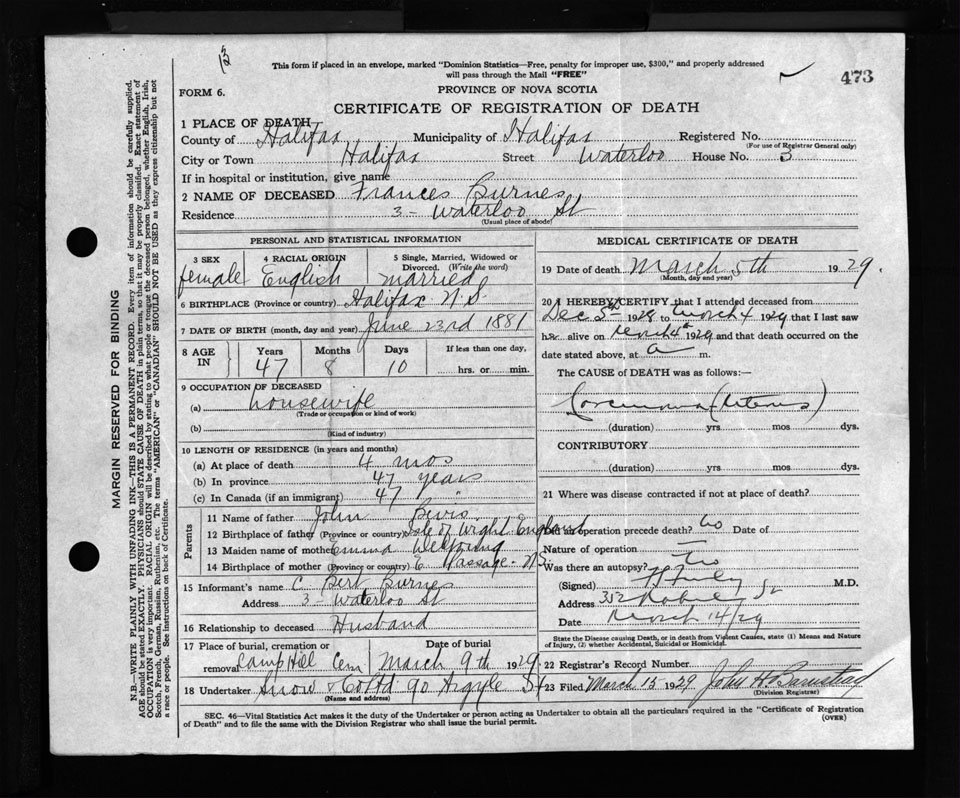 13
This form if placed in an envelope, marked "Dominion Statistics—Free, penalty for improper use, $300," and properly addressed
will pass through the Mail "FREE"
473
FORM 6.
PROVINCE OF NOVA SCOTIA
CERTIFICATE OF REGISTRATION OF DEATH
1 PLACE OF DEATH
County of Halifax Municipality of Halifax Registered No.
(For use of Registrar General only)
City or Town Halifax Street Waterloo House No. 3
If in hospital or institution, give name
2 NAME OF DECEASED Frances Burnes
Residence 3 - Waterloo St
(Usual place of abode)
PERSONAL AND STATISTICAL INFORMATION
3 SEX 4 RACIAL ORIGIN 5 Single, Married, Widowed or
Divorced. (Write the word)
female English married
6 BIRTHPLACE (Province or country) Halifax N.S.
7 DATE OF BIRTH (month, day and year) June 23rd 1881
8 AGE IN Years Months Days If less than one day,
47 8 10 hrs. or min.
9 OCCUPATION OF DECEASED
(a) housewife
(Trade or occupation or kind of work)
(b)
(Kind of industry)
10 LENGTH OF RESIDENCE (in years and months)
(a) At place of death 4 mos
(b) In province 47 years
(c) In Canada (if an immigrant) 47 "
Parents
11 Name of father John Bevis
12 Birthplace of father (Province or country) Isle of Wight England
13 Maiden name of mother Emma
14 Birthplace of mother (Province or country) E Passage - N.S.
15 Informant's name C. Bert Burnes
Address 3 - Waterloo St
16 Relationship to deceased Husband
17 Place of burial, cremation or Date of burial
removal Camp Hill Cem March 9th 1929
18 Undertaker Snow & Co Ltd 90 Argyle St
(Name and address)
MEDICAL CERTIFICATE OF DEATH
19 Date of death March 5th 1929.
(Month, day and year)
20 I HEREBY CERTIFY that I attended deceased from
Dec 5th 1928 to March 4 1929 that I last saw
her alive on March 4th 1929 and that death occurred on the
date stated above, at a m.
The CAUSE of DEATH was as follows:—
Carcinoma (Uterus)
(duration) yrs mos dys.
CONTRIBUTORY
(duration) yrs. mos dys.
21 Where was disease contracted if not at place of death?
Did an operation precede death? No Date of
Nature of operation —
Was there an autopsy? No
(Signed) M.D.
Address 352 Robie St
Date March 14/29
State the Disease causing Death, or in death from Violent Causes, state (1) Means and Nature
of Injury, (2) whether Accidental, Suicidal or Homicidal.
22 Registrar's Record Number
23 Filed March 15 1929 John H. Barnstead
(Division Registrar)
SEC. 46—Vital Statistics Act makes it the duty of the Undertaker or person acting as Undertaker to obtain all the particulars required in the "Certificate of Registration
of Death" and to file the same with the Division Registrar who shall issue the burial permit.
(OVER)
MARGIN RESERVED FOR BINDING
N.B.—WRITE PLAINLY WITH UNFADING INK—THIS IS A PERMANENT RECORD. Every item of information should be carefully supplied.
AGE should be stated EXACTLY. PHYSICIANS should STATE CAUSE OF DEATH in plain terms, so that it may be properly classified. Exact statement of
OCCUPATION is very important. RACIAL ORIGIN will be described by stating to what people or tongue the deceased person belonged, whether English, Irish,
Scotch, French, German, Russian, Ruthenian, etc. The terms "AMERICAN" or "CANADIAN" SHOULD NOT BE USED as they express citizenship but not
a race or people. See instructions on back of Certificate.